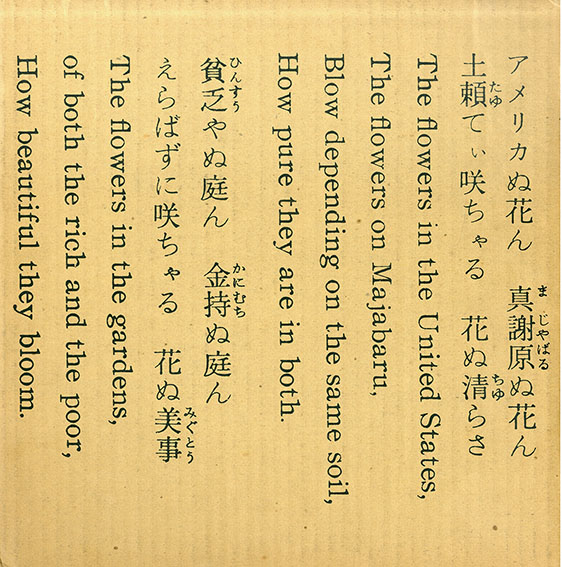 まじやばる
アメリカぬ花ん　真謝原ぬ花ん
たゆ　ちゆ
土頼てぃ咲ちゃる　花ぬ清らさ
The flowers in the United States,
The flowers on Majabaru,
Blow depending on the same soil,
How pure they are in both.
ひんすう　かにむち
貧乏やぬ庭ん　金持ぬ庭ん
みぐとう
えらばずに咲ちゃる　花ぬ美事
The flowers in the gardens,
of both the rich and the poor,
How beautiful they bloom.